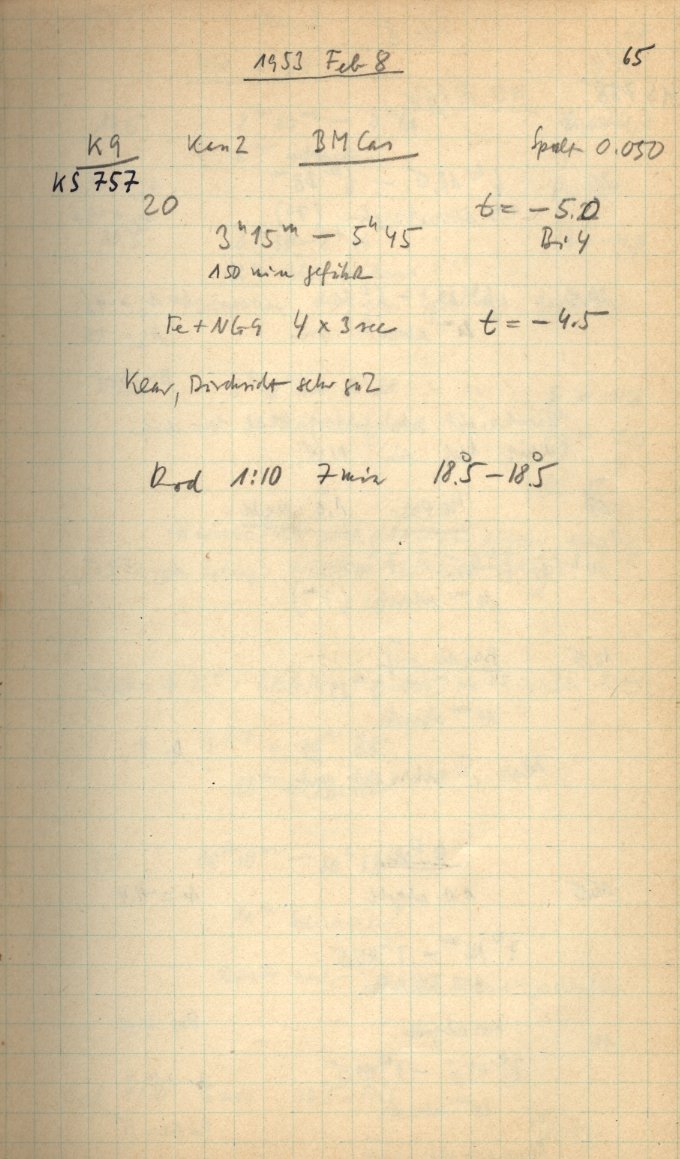 1953 Feb 8 65
K9 Kan 2 BM Cas Spalt 0.050
KS 757
20 t = -5.0
3ʰ15ᵐ — 5ʰ45 Bi 4
150 min geführt
Fe + NG9 4 x 3 sec t = -4.5
Klar, Durchsicht sehr gut
Rod 1:10 7 min 18°.5 — 18°.5